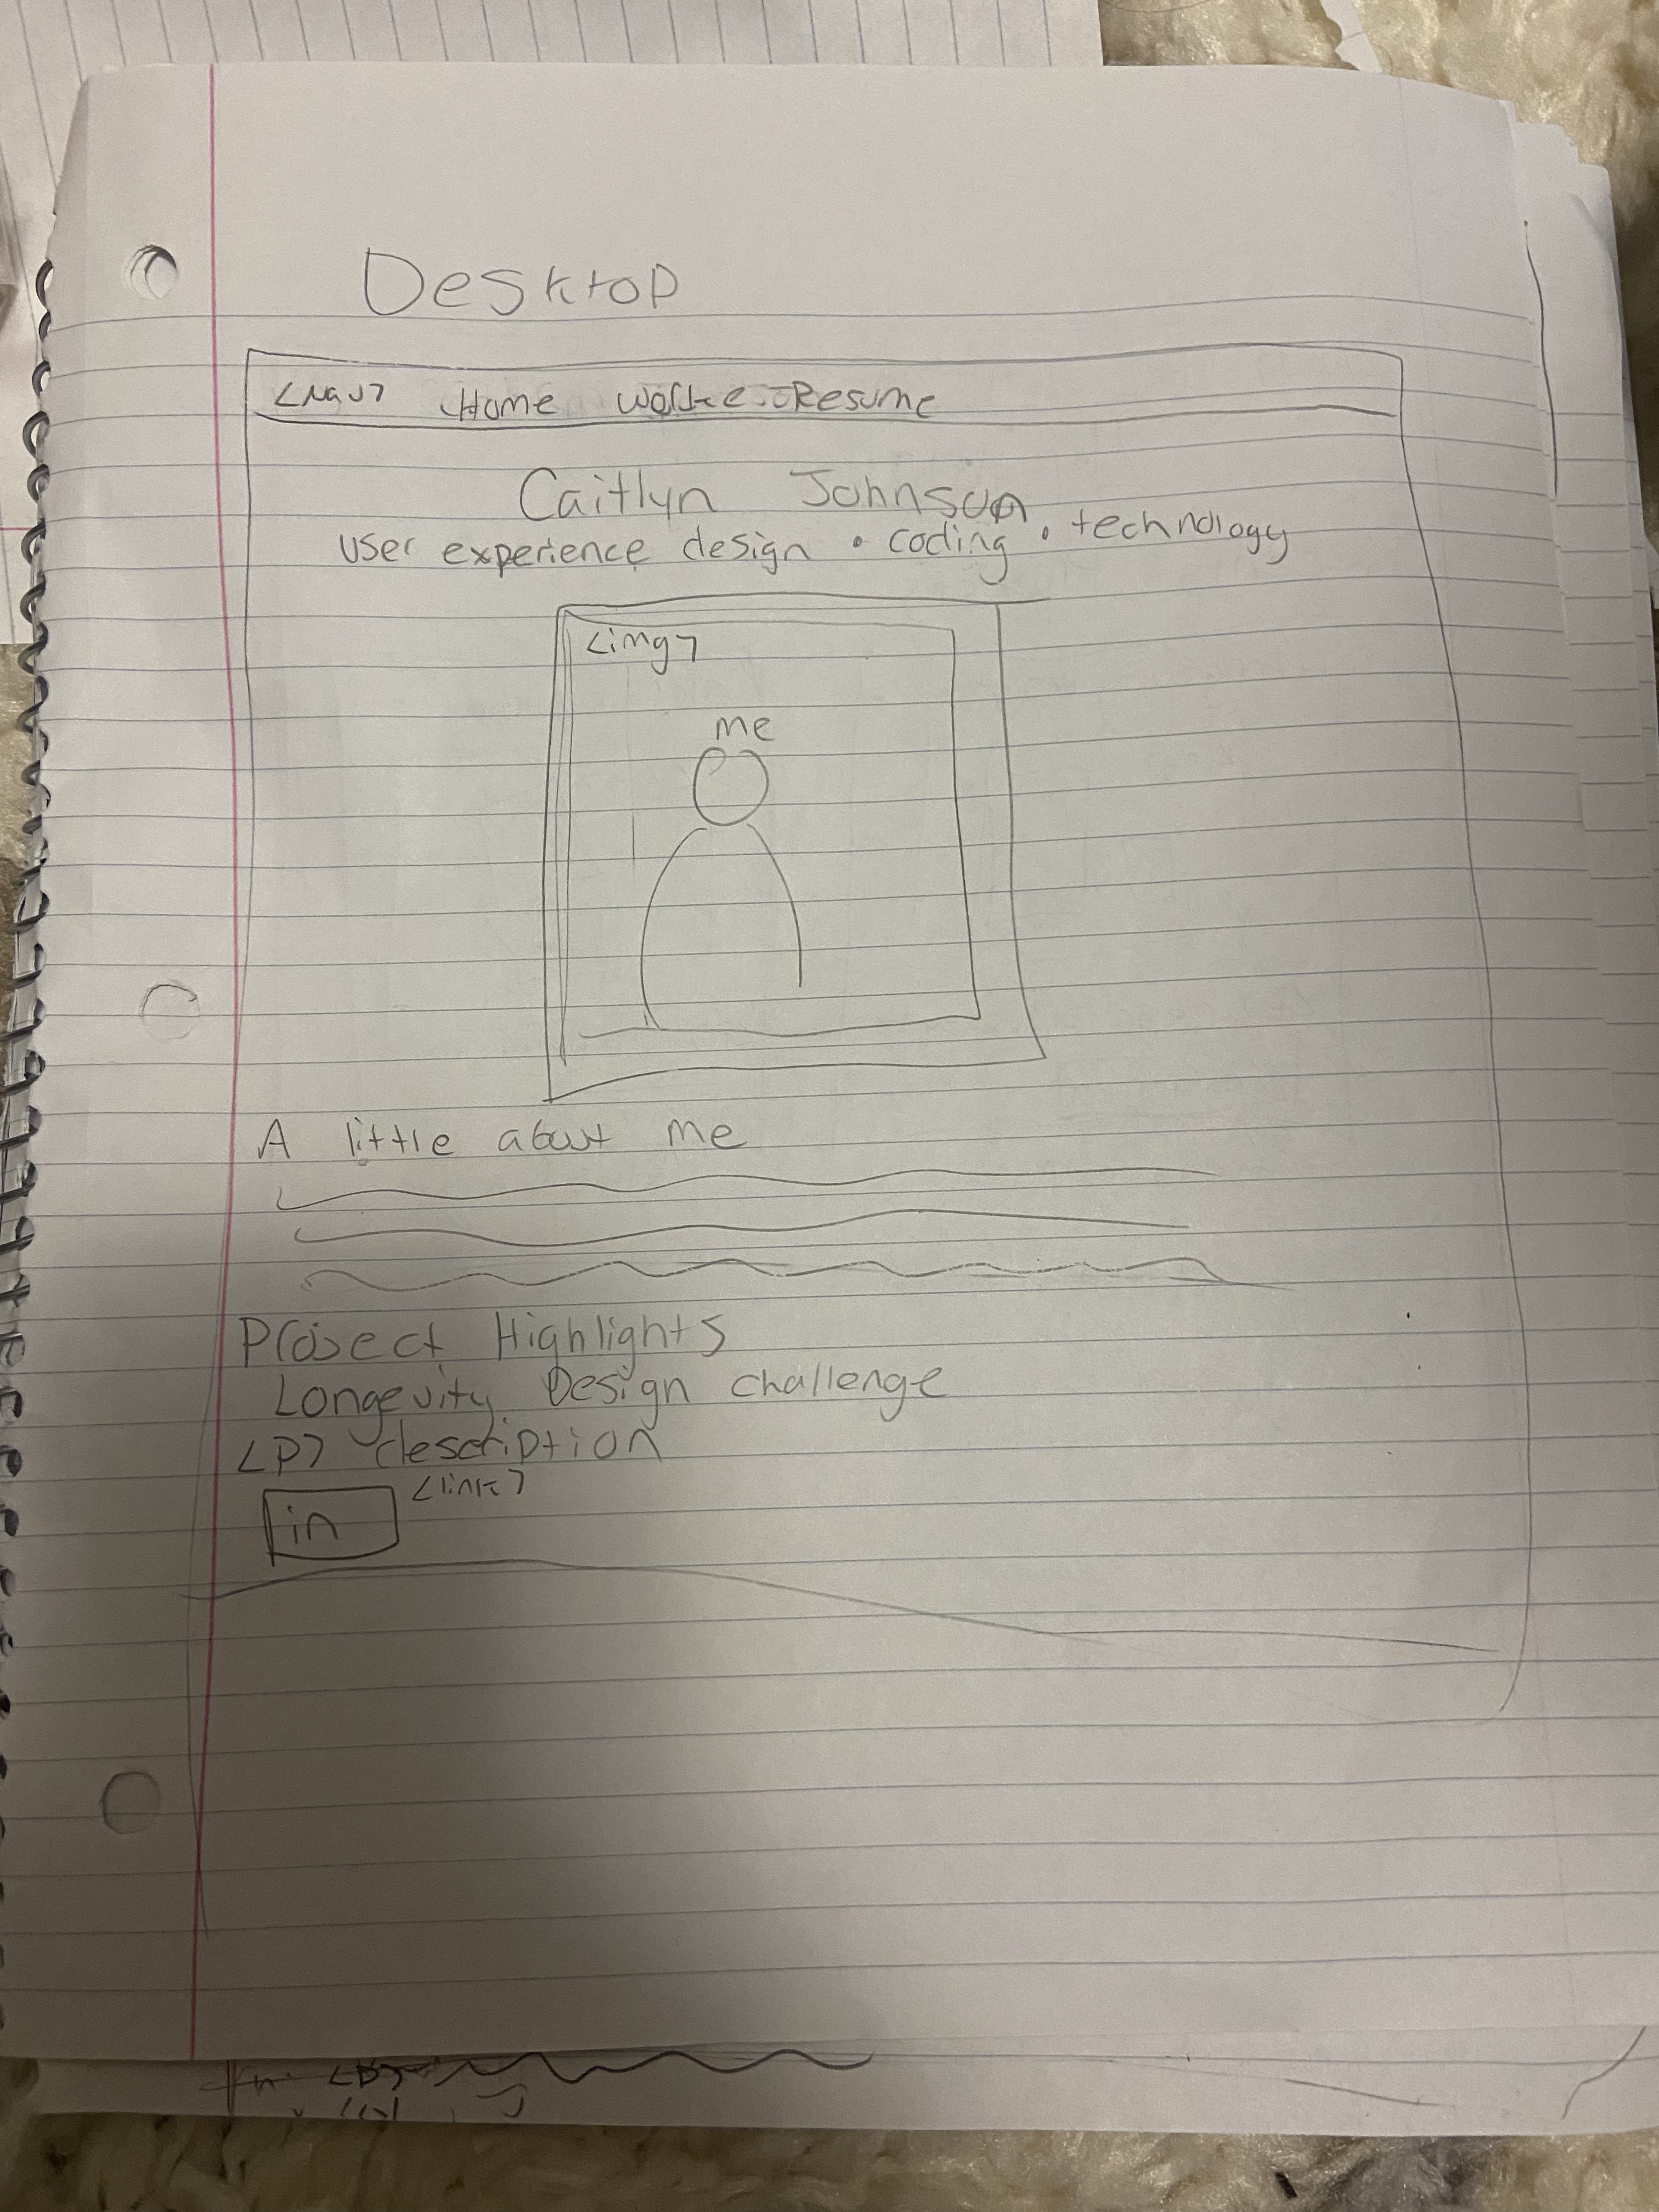 Desktop
<nav> Home Resume
Caitlyn Johnson
user experience design • coding • technology
<img>
me
A little about me
Project Highlights
Longevity Design challenge
<P> description
<link>
in
<P>